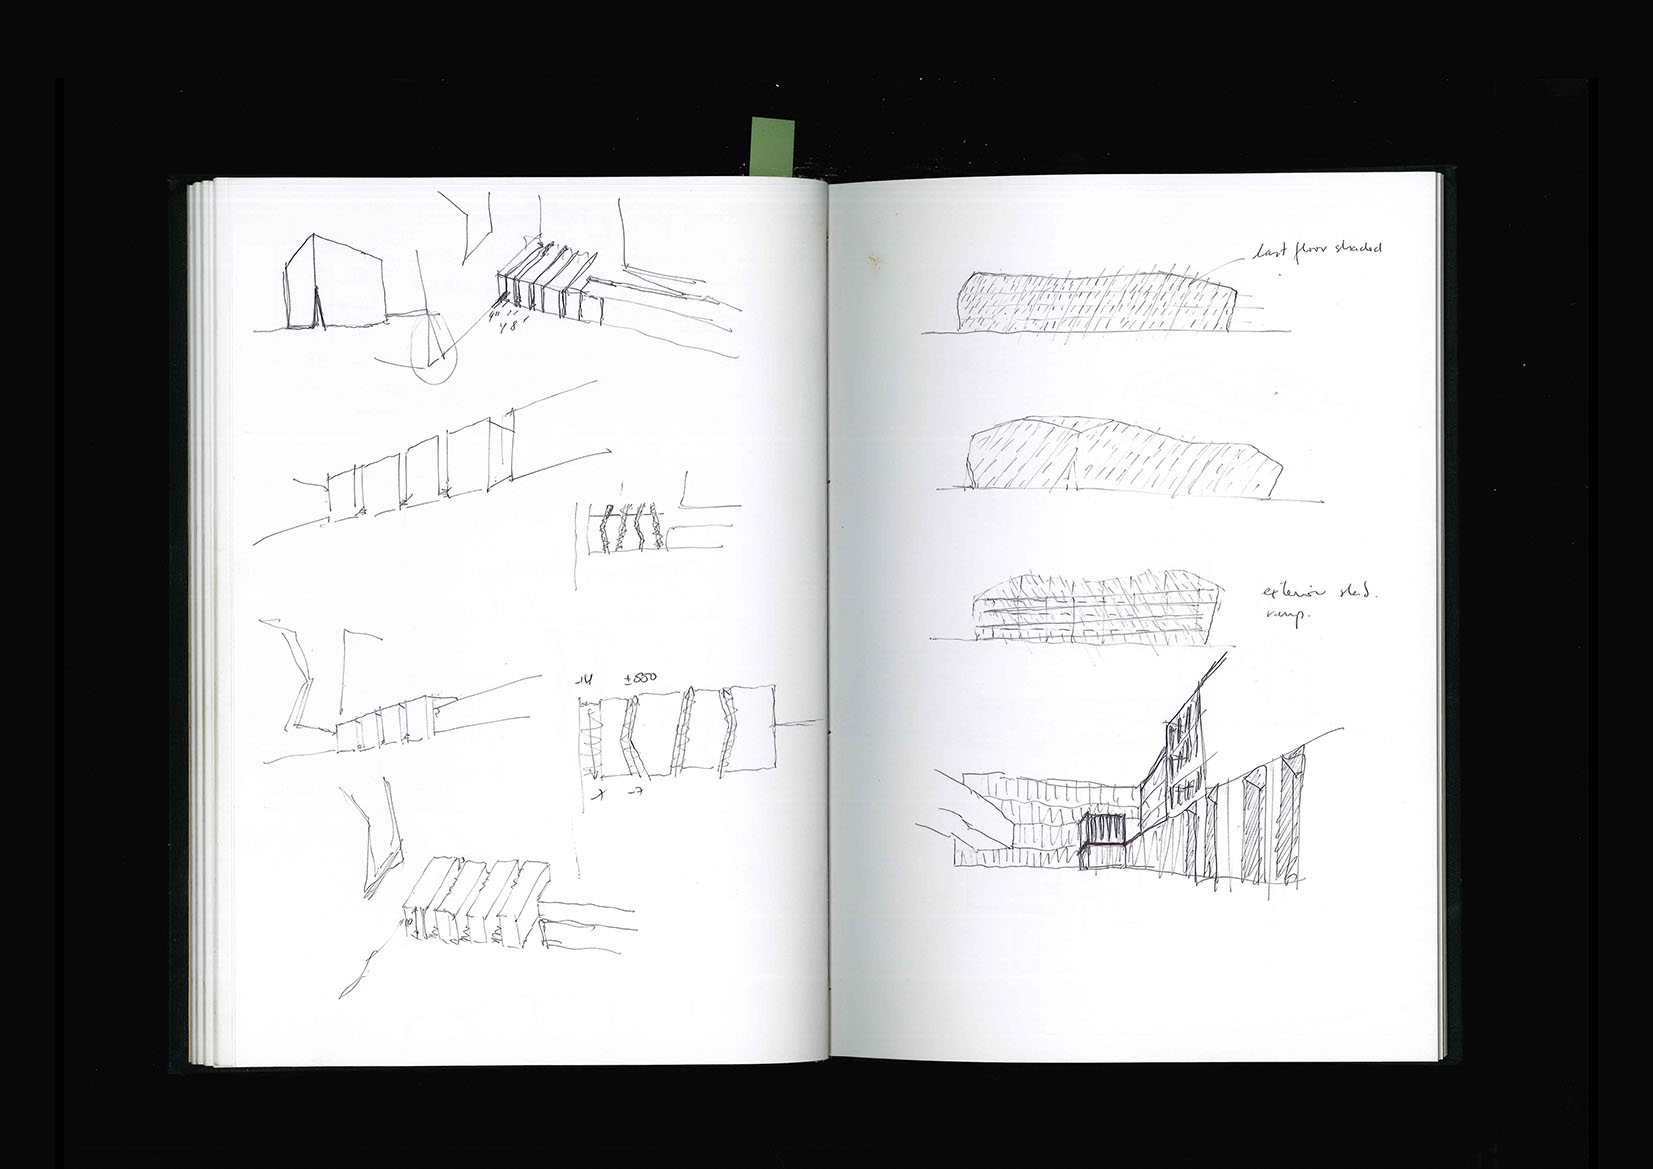 48'
-14 ±550
-7 -7
last floor shaded
exterior shad.
ramp.